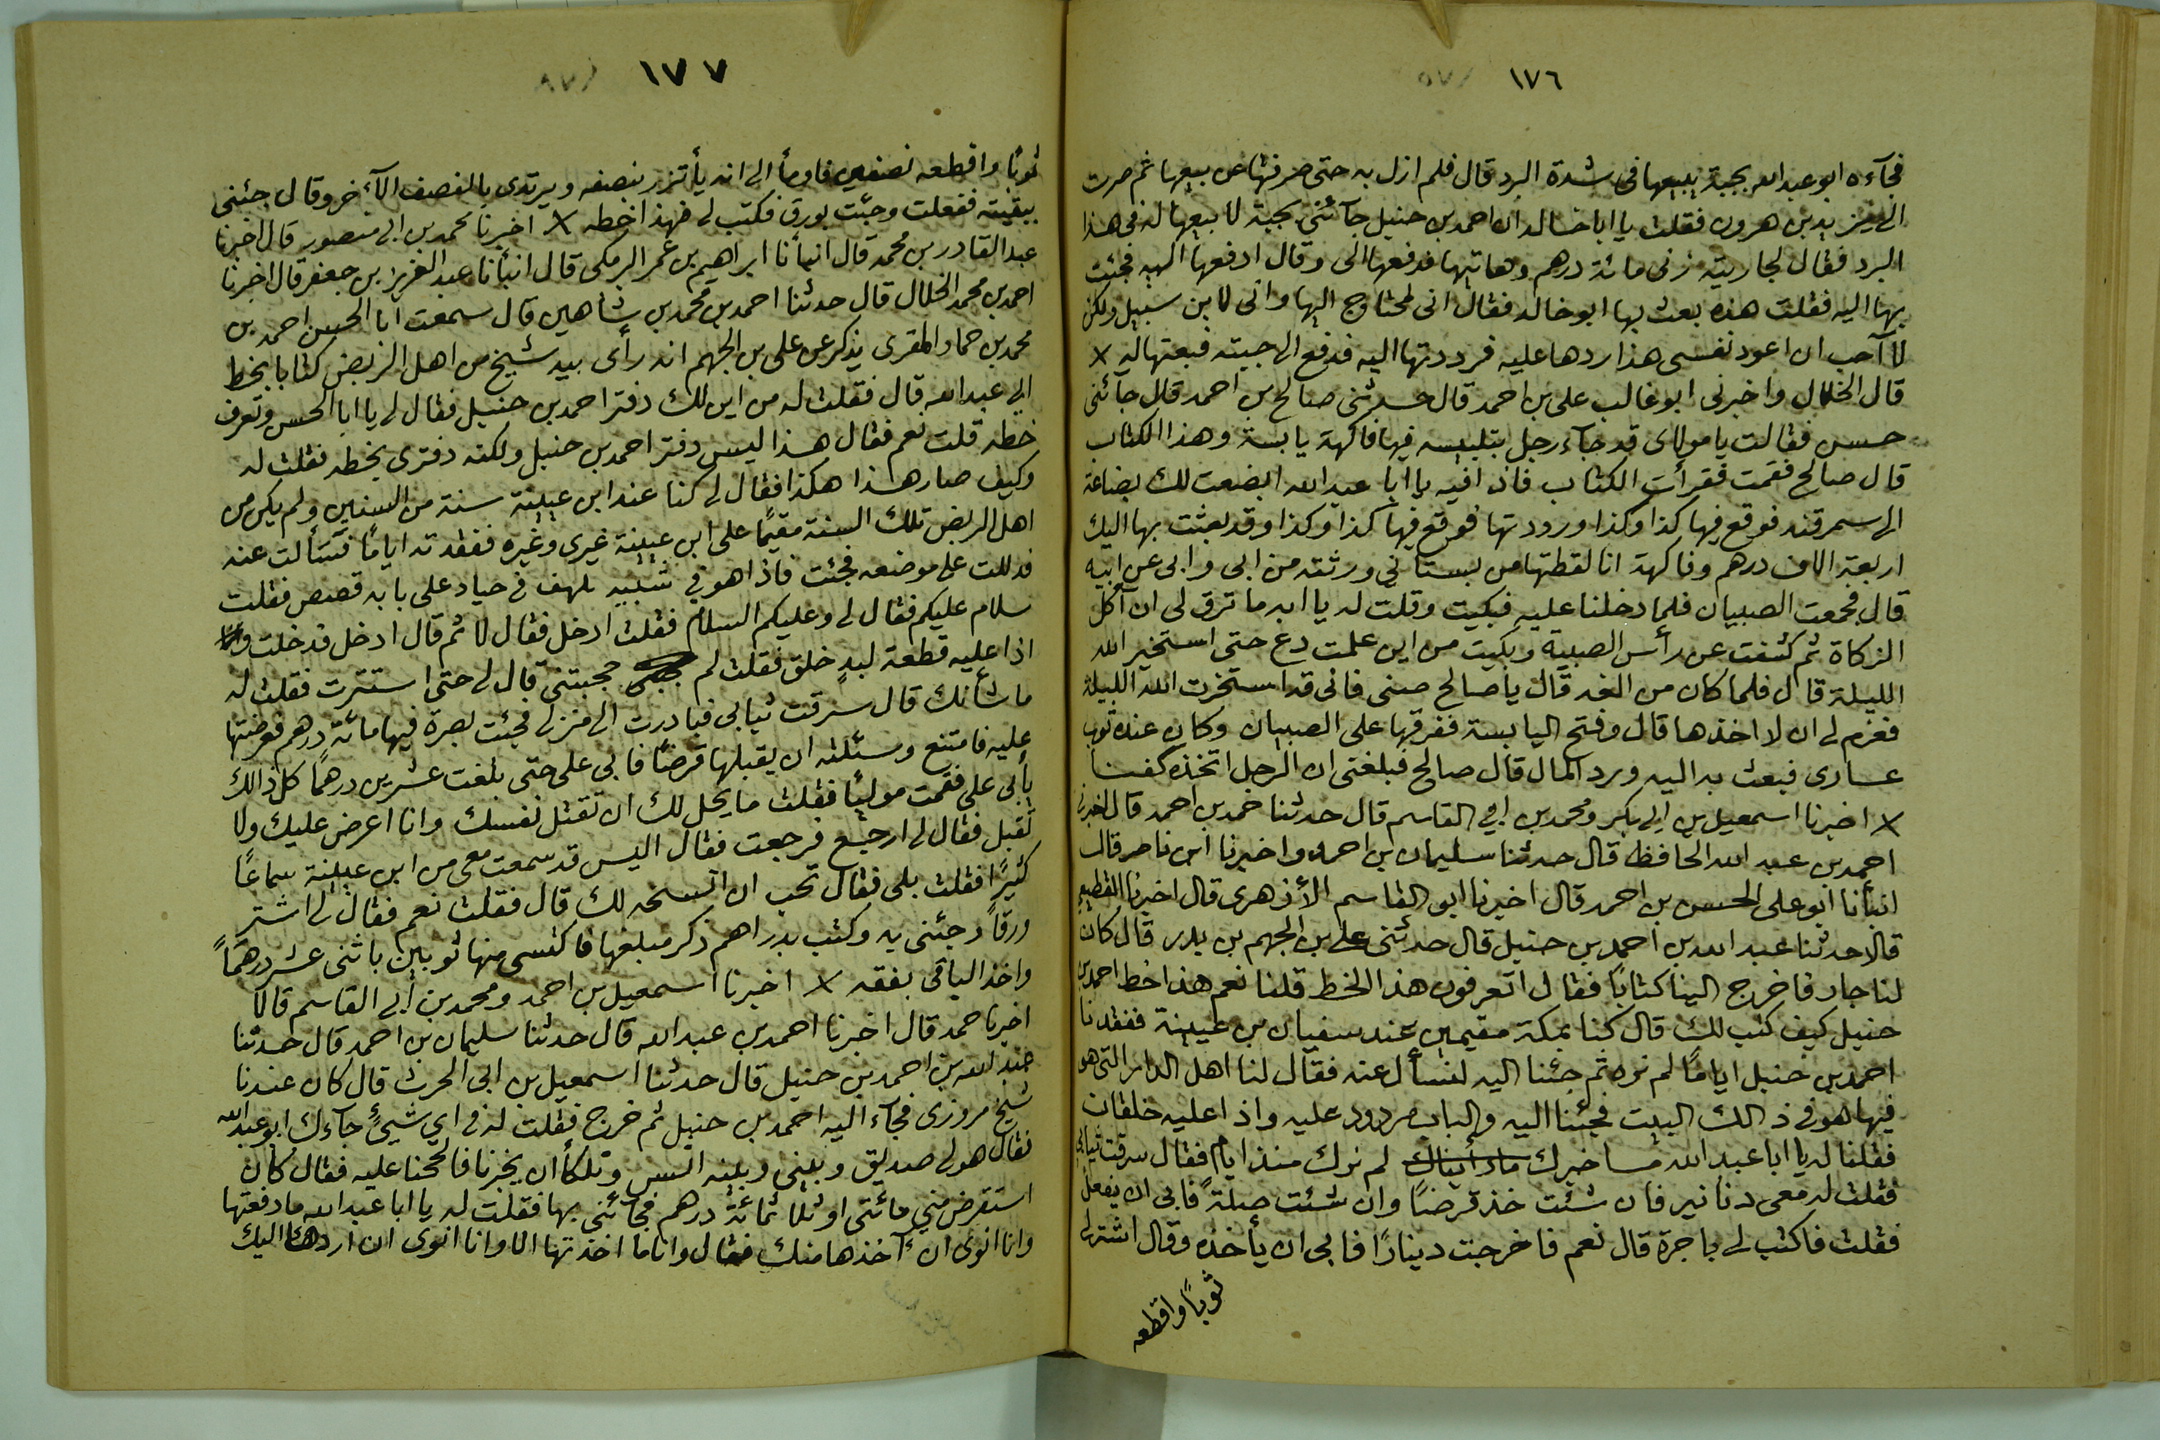 ١٧٦
فجآءه ابو عبد الله بجبة يبيعها في شدة البرد قال فلم ازل به حتى صرفتها عن بيعها ثم صرت
الى يزيد بن هرون فقلت يا ابا خالد ان احمد بن حنبل جآئنى بجبة لا بيعها له فى هذا
البرد فقال لجاريته زنى مائة درهم وهاتيها فدفعها الى وقال ادفعها اليه فجئت
بها اليه فقلت هذه بعث بها ابو خالد فقال انى لمحتاج اليها وانى لابن سبيل ولكن
لا آحب ان اعود نفسى هذا ردها عليه فرددتها اليه فدفع الى جبته فبعتها له ×
قال الخلال واخبرنى ابو غالب على بن احمد قال حدثنى صالح بن احمد قال جآئنى
حسن فقالت يا مولاى قد جآء رجل بتليسه فيها فاكهة يابسة وهذا الكتاب
قال صالح فقمت فقرأت الكتاب فاذا فيه يا ابا عبد الله ابضعت لك بضاعة
الى سمرقند فوقع فيها كذا وكذا ورددتها فوقع فيها كذا وكذا وقد بعثت بها اليك
اربعة الاف درهم وفاكهة انا لقطتها من بستاني ورثته من ابى وابى عن ابيه
قال فجمعت الصبيان فلما دخلنا عليه فبكيت وقلت له يا ابه ما ترق لى ان آكل
الزكاة ثم كشفت عن رأس الصبية وبكيت من اين علمت دع حتى استخير الله
الليلة قال فلما كان من الغد قال يا صالح صنى فانى قد استخرت الله الليلة
فعزم لى ان لا اخذها قال وفتح اليابسة ففرقها على الصبيان وكان عنده ثوب
عسارى فبعث به اليه ورد المال قال صالح فبلغنى ان الرجل اتخذه كفنا
× اخبرنا اسمعيل بن ابى بكر ومحمد بن ابي القاسم قال حدثنا حمد بن احمد قال اخبرنا
احمد بن عبد الله الحافظ قال حدثنا سليمان بن احمد واخبرنا ابن ناصر قال
انبأنا ابو على الحسن بن احمد قال اخبرنا ابو القاسم الأزهرى قال اخبرنا القطيعى
قالا حدثنا عبد الله بن أحمد بن حنبل قال حدثنى على بن الجهم بن بدر قال كان
لنا جار فاخرج الينا كتابًا فقال اتعرفون هذا الخط قلنا نعم هذا خط احمد بن
حنبل كيف كتب لك قال كنا بمكة مقيمين عند سفيان بن عيينة ففقدنا
احمد بن حنبل ايامًا لم نره ثم جئنا اليه لنسأل عنه فقال لنا اهل الدار التى هو
فيها هو فى ذالك البيت فجئنا اليه والباب مردود عليه واذا عليه خلقان
فقلنا له يا ابا عبد الله ما خبرك ما رأيناك لم نرك منذ ايام فقال سرقت ثيابي
فقلت له معى دنانير فان شئت خذ قرضًا وان شئت صلة فابى ان يفعل
فقلت فاكتب لى باجرة قال نعم فاخرجت دينارًا فابى ان يأخذه وقال اشتر لى
ثوبًا واقطعه
١٧٧
ثوبًا واقطعه نصفين فاومأ الى انه يأتزر بنصفه ويرتدى بالنصف الآخر وقال جئنى
ببقيته ففعلت وجئت بورق فكتب لى فهذا خطه × اخبرنا محمد بن ابى منصور قال اخبرنا
عبد القادر بن محمد قال انبأنا ابراهيم بن عمر البرمكى قال انبأنا عبد العزيز بن جعفر قال اخبرنا
احمد بن محمد الخلال قال حدثنا احمد بن محمد بن شاهين قال سمعت ابا الحسن احمد بن
محمد بن حماد المقرى يذكر عن على بن الجهم انه رأى بيد شيخ من اهل الربض كتابا بخط
ابى عبد الله قال فقلت له من اين لك دفتر احمد بن حنبل فقال لى يا ابا الحسن وتعرف
خطه قلت نعم فقال هذا ليس دفتر احمد بن حنبل ولكنه دفترى بخطه فقلت له
وكيف صار هذا هكذا فقال لى كنا عند ابن عيينة سنة من السنين ولم يكن من
اهل الربض تلك السنة مقيمًا على ابن عيينة غيرى وغيره ففقدته ايامًا فسألت عنه
فدللت على موضعه فجئت فاذا هو في شبيه بلهف في جياد على بابه قصيص فقلت
سلام عليكم فقال لى وعليكم السلام فقلت ادخل فقال لا ثم قال ادخل فدخلت
اذا عليه قطعة لبدٍ خلق فقلت لم حجبتنى قال لى حتى استترت فقلت له
ما شأنك قال سرقت ثيابى فبادرت الى منزلى فجئت بصرة فيها مائة درهم فعرضتها
عليه فامتنع وسئلته ان يقبلها قرضًا فابى على حتى بلغت عشرين درهمًا كل ذالك
يأبى على فقمت موليًا فقلت ما يحل لك ان تقتل نفسك وانا اعرض عليك ولا
تقبل فقال لى ارجع فرجعت فقال اليس قد سمعت معى من ابن عيينة سماعًا
كثيرًا فقلت بلى فقال تحب ان انسخه لك قال فقلت نعم فقال لى اشتر
ورقًا وجئنى به وكتب بدراهم ذكر مبلغها فاكتسى منها ثوبين باثنى عشر درهمًا
واخذ الباقى نفقه × اخبرنا اسمعيل بن احمد ومحمد بن ابى القاسم قالا
اخبرنا حمد قال اخبرنا احمد بن عبد الله قال حدثنا سليمان بن احمد قال حدثنا
عبد الله بن احمد بن حنبل قال حدثنا اسمعيل بن ابى الحرث قال كان عندنا
شيخ مروزى فجآء اليه احمد بن حنبل ثم خرج فقلت له فى اي شيئٍ جآءك ابو عبد الله
فقال هو لى صديق وبينى وبينه انس وتلكأ ان يخبرنا فالححنا عليه فقال كان
استقرض مني مائتى او ثلاثمائة درهم فجآئنى بها فقلت له يا ابا عبد الله ما دفعتها
وانا انوى ان آخذها منك فقال وانا ما اخذتها الا وانا انوى ان اردها اليك